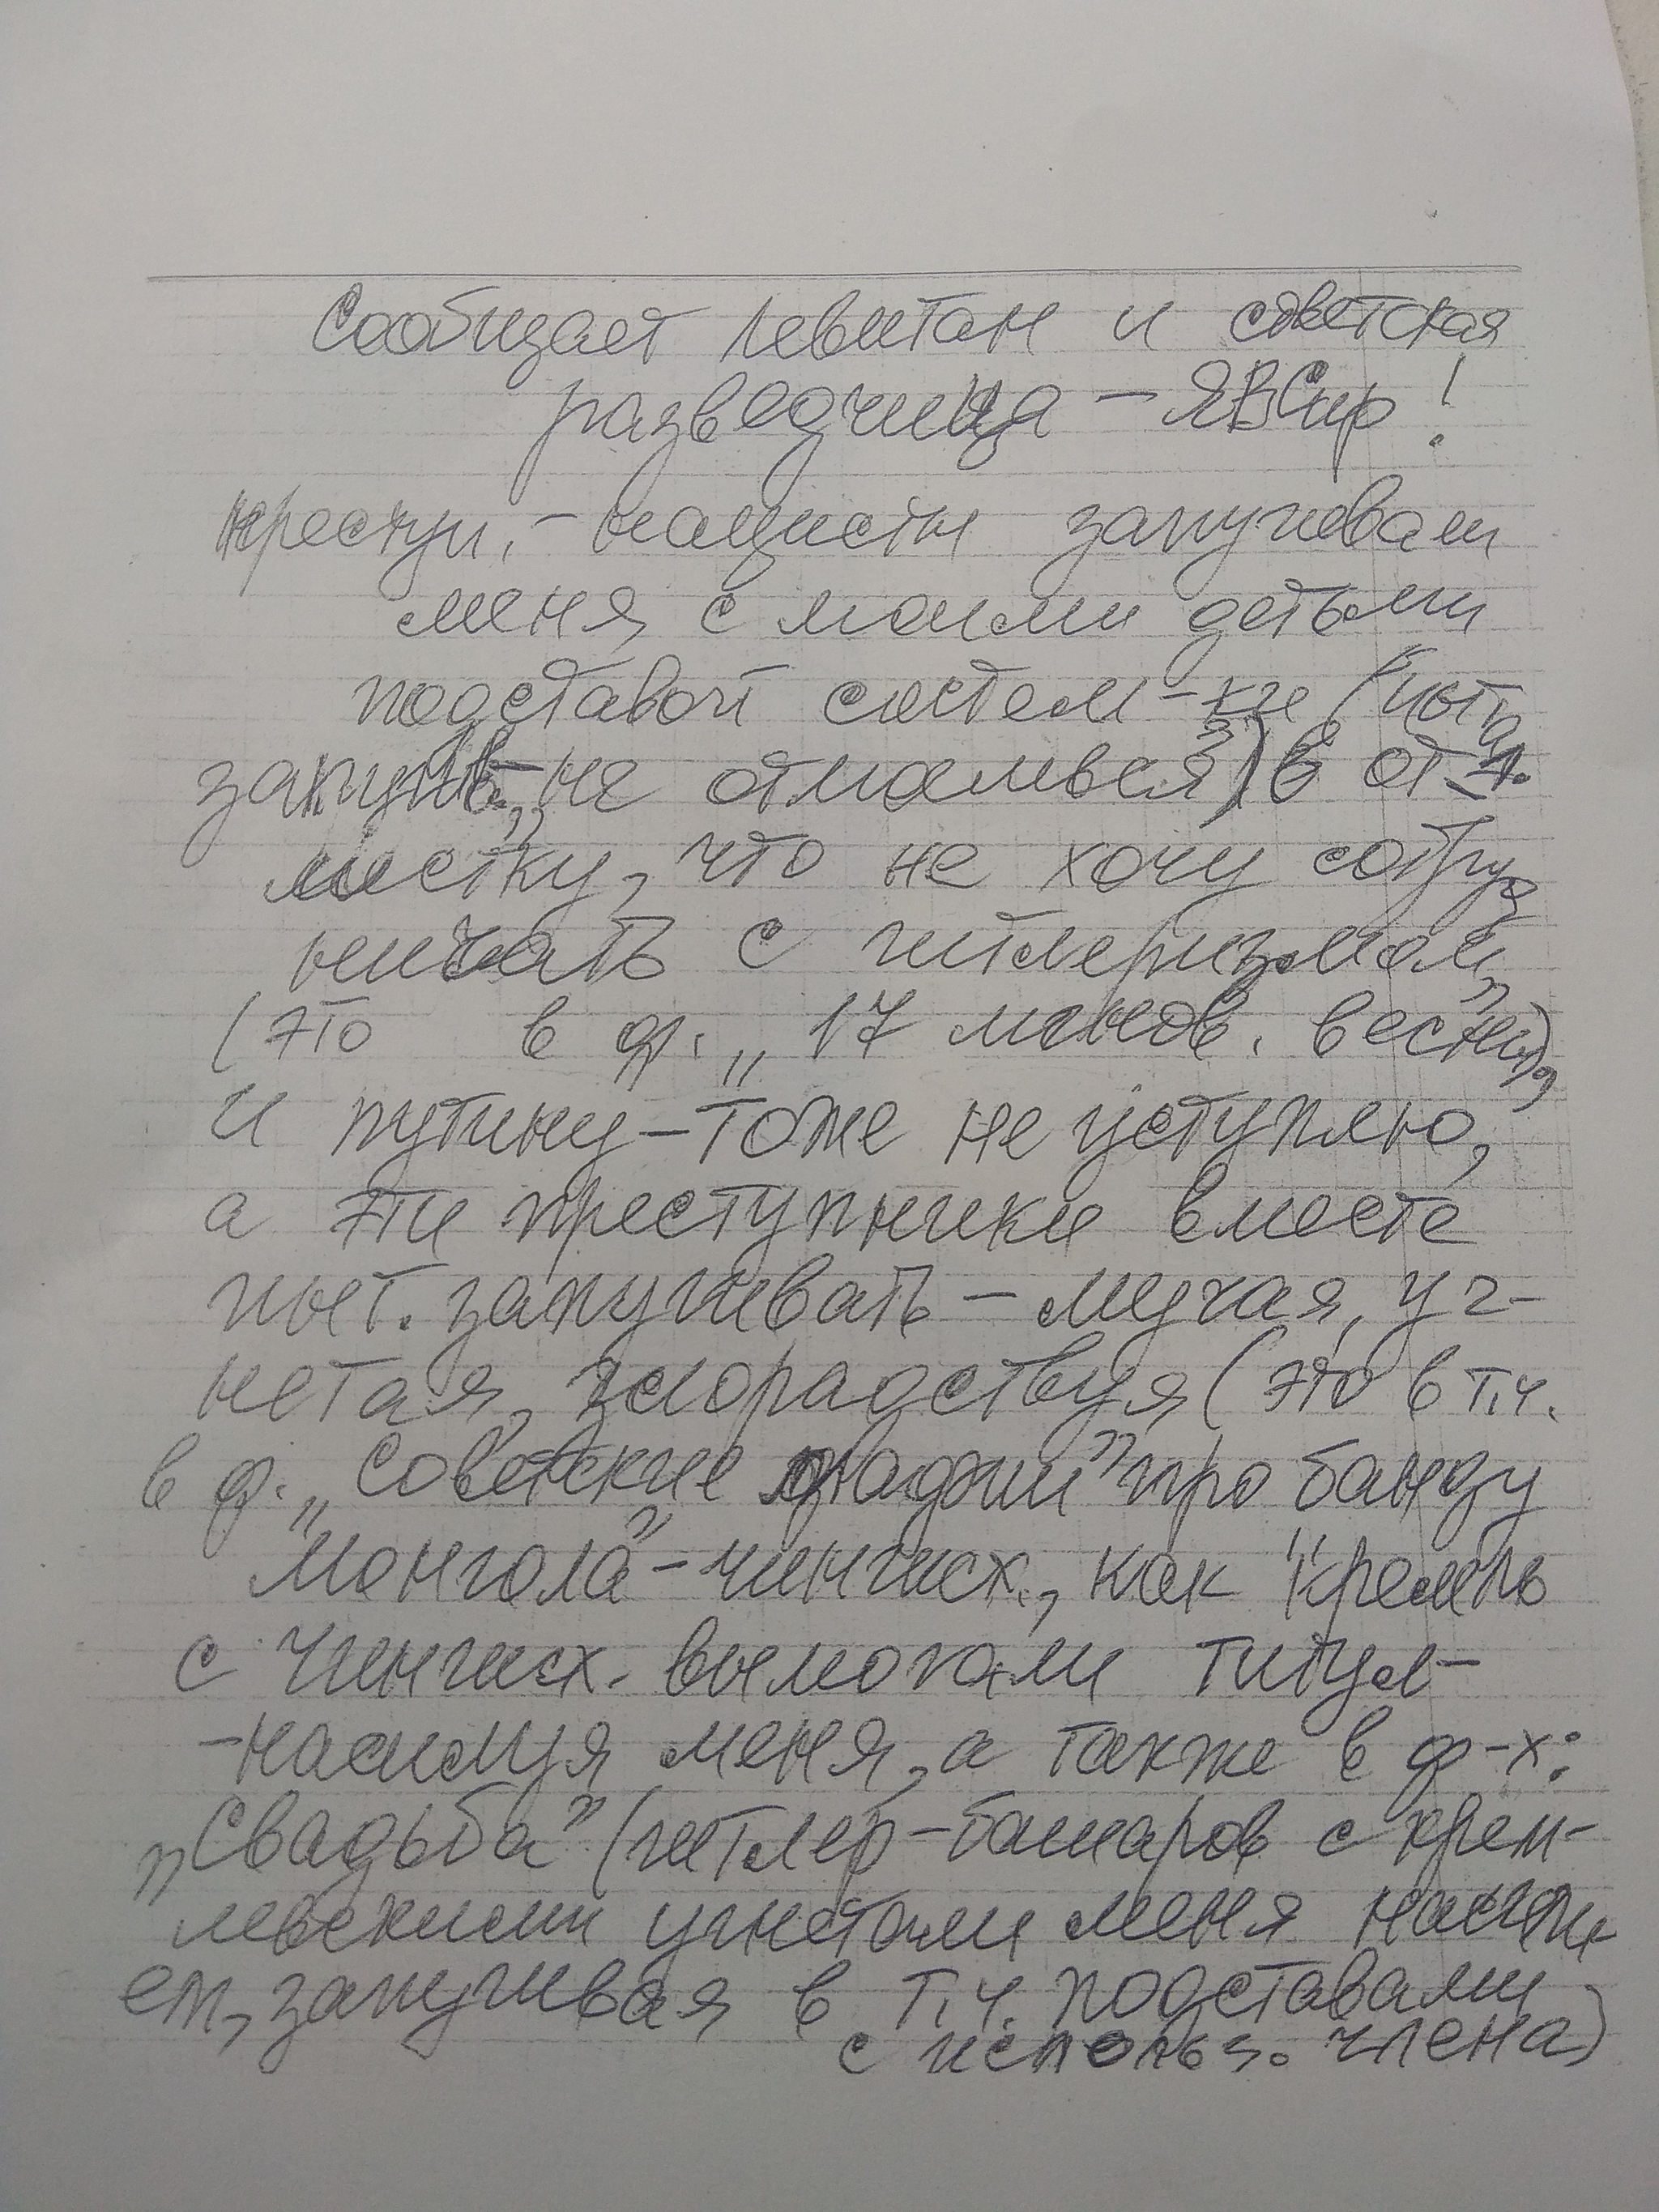 Сообщает левитан и советская
разведчица – ЯВСир!
преступ. – нацисты запугивали
меня с моими детьми
подставой систем-ки (пыта
запуг не отмоешься") в от-
местку, что не хочу сотруд
ничать с гитлеризмом,
(это в ф. „17 мгнов. весны"),
и путину – тоже не уступлю,
а эти преступники вместе
пыт. запугивать – мучая, уг-
нетая, злорадствуя (это в т.ч.
в ф. „Советские мафии" про банду
„монгола" – чингисх., как "кремль
с чингисх. вымогали титул-
-насилуя меня, а также в ф-х:
„Свадьба" (гитлер-башаров с крем-
левскими угнетали меня насили
ем, запугивая в т.ч. подставами
с использ. члена)